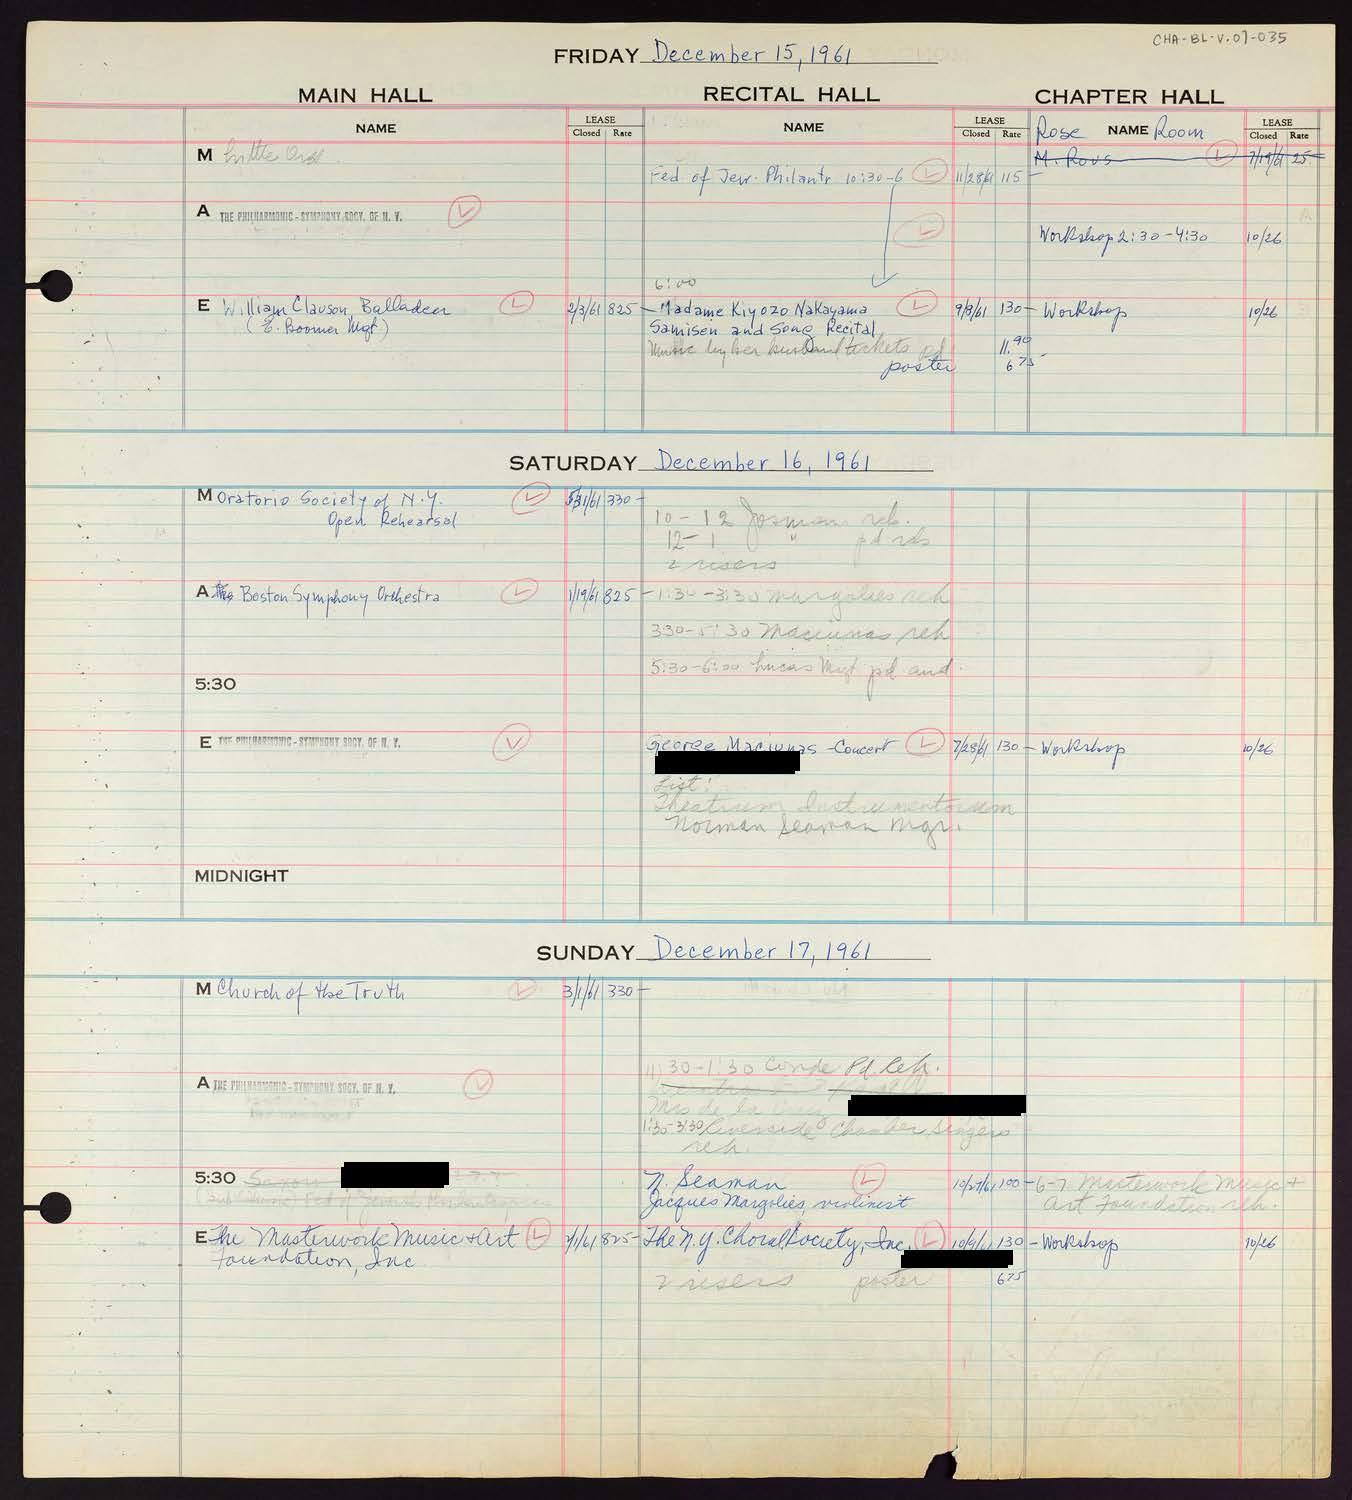 CHA-BL-V.07-035
FRIDAY December 15, 1961
MAIN HALL RECITAL HALL CHAPTER HALL
NAME LEASE Closed Rate NAME LEASE Closed Rate Rose NAME Room LEASE Closed Rate
M Little Orch. M. Rovs L 7/19/61 25-
Fed of Jew. Philantr. 10:30-6 L 11/28/61 115-
A THE PHILHARMONIC-SYMPHONY SOCY. OF N. Y. L
L Workshop 2:30-4:30 10/26
6:00
E William Clauson, Balladeer L 2/3/61 825- Madame Kiyozo Nakayama L 9/8/61 130- Workshop 10/26
(E. Boomer Mgt) Samisen and Song Recital
Music by her husband tickets pd 11.90
poster 6 75
SATURDAY December 16, 1961
M Oratorio Society of N.Y. L 5/31/61 330-
Open Rehearsal
10-12 Josman reh.
12-1 " pd reh
2 risers
A The Boston Symphony Orchestra L 1/19/61 825- 1:30-3:30 Margolies reh
330-5:30 Maciunas reh
5:30-6:00 Lucas Mgt pd aud
5:30
E THE PHILHARMONIC-SYMPHONY SOCY. OF N. Y. L George Maciunas - Concert L 7/28/61 130- Workshop 10/26
List:
Theatrum Instrumentorum
Norman Seaman Mgr.
MIDNIGHT
SUNDAY December 17, 1961
M Church of the Truth L 3/1/61 330-
11:30-1:30 Conde Pd. Reh.
A THE PHILHARMONIC-SYMPHONY SOCY. OF N. Y. L
Mrs de la
1:30-3:30 Riverside Chamber Singers
reh.
5:30 N. Seaman L 10/27/61 100- 6-7 Masterwork Music +
Jacques Margolies, violinist Art Foundation reh.
E The Masterwork Music & Art L 2/1/61 825- The N.Y. Choral Society, Inc. L 10/9/61 130- Workshop 10/26
Foundation, Inc
2 risers poster 6 75